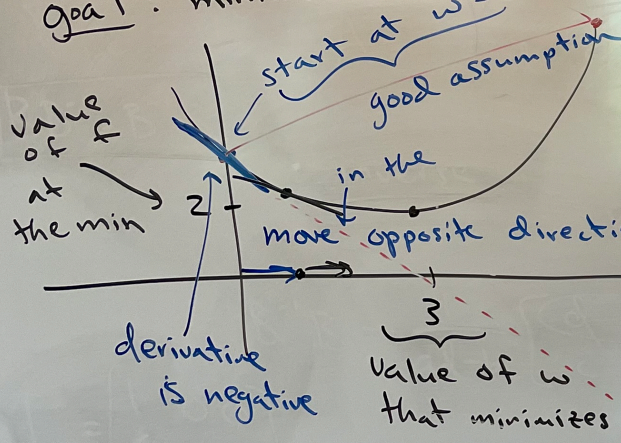 goal: min
start at w =
good assumption
value
of f
at
the min
in the
2
move opposite directi
3
derivative
is negative
value of w
that minimizes